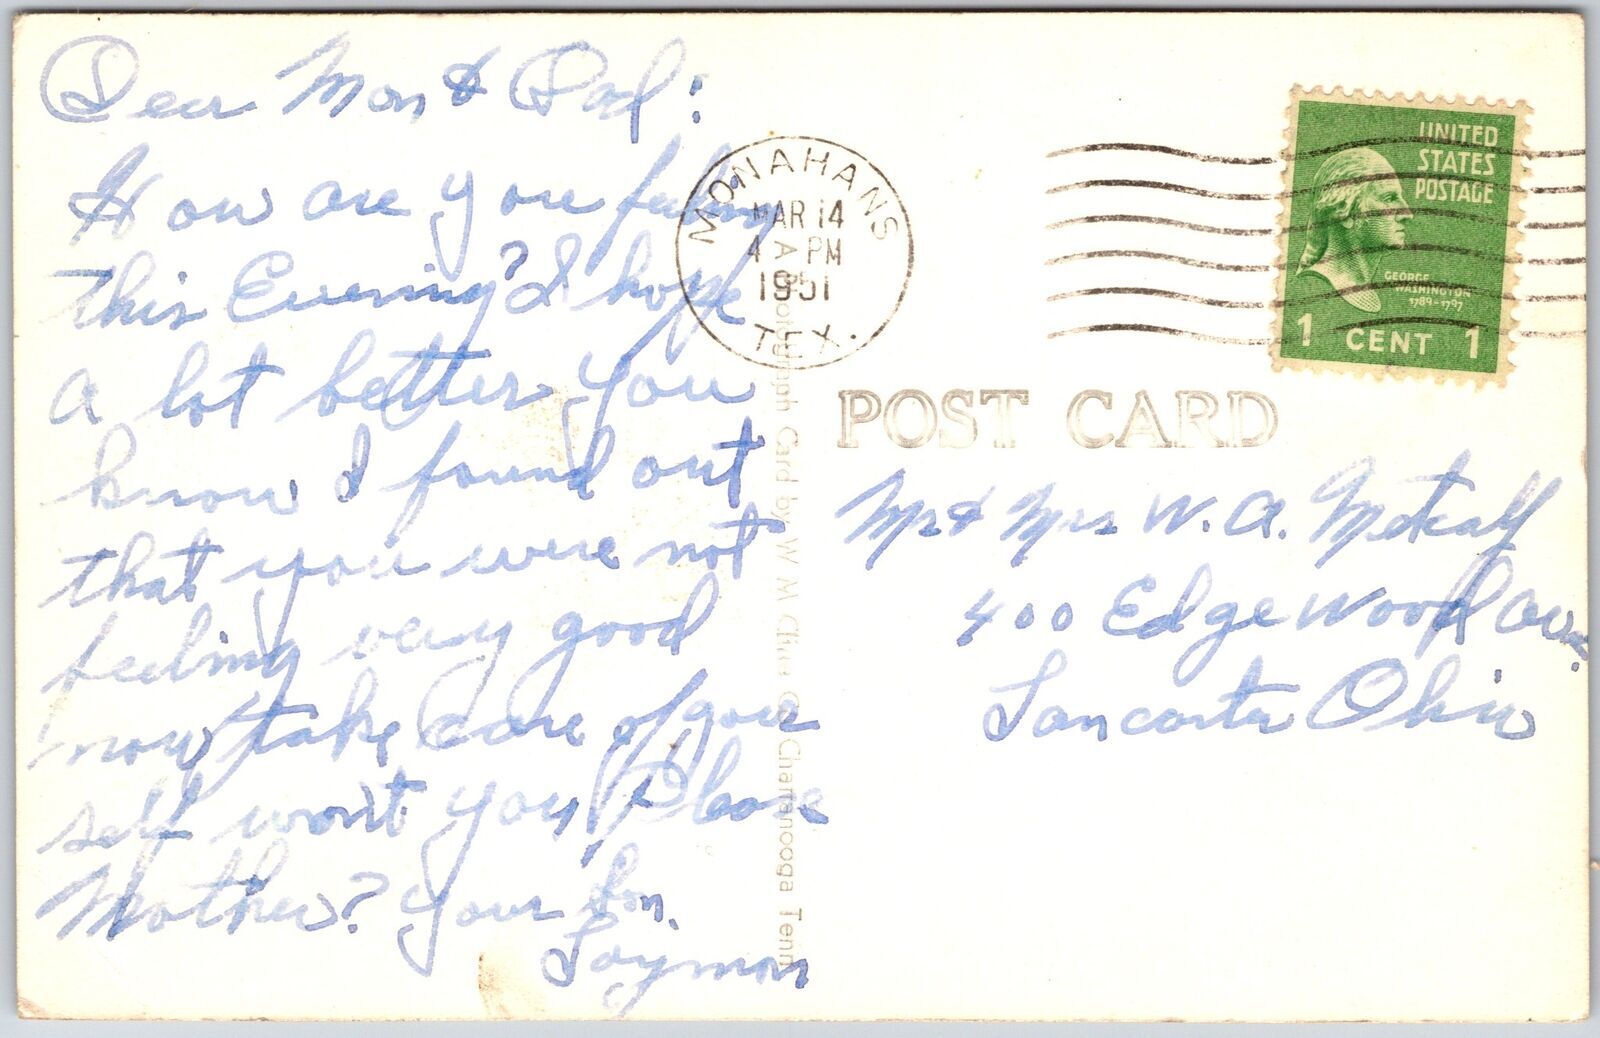 Dear Mom & Dad:
How are you feeling
this Evening? I hope
a lot better. You
know I found out
that you were not
feeling very good
now take care of your
self won't you, Please
Mother? Your Son.
Laymon
MONAHANS
MAR 14
4 PM
1951
TEX.
UNITED
STATES
POSTAGE
GEORGE
WASHINGTON
1789-1797
1 CENT 1
POST CARD
Mr & Mrs W. A. Metcalf
400 Edgewood Ave.
Lancaster Ohio
Photograph Card by W M Cline Co Chattanooga Tenn